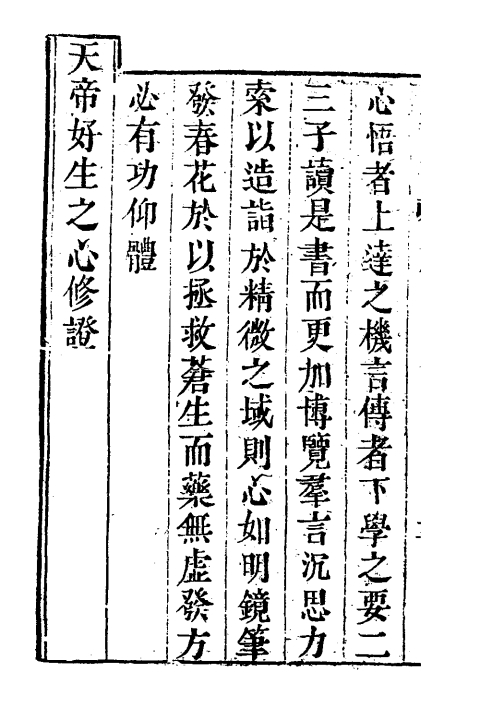 心悟者上達之機言傳者下學之要二
三子讀是書而更加博覽羣言沉思力
索以造詣於精微之域則心如明鏡筆
發春花於以拯救蒼生而藥無虛發方
必有功仰體
天帝好生之心修證